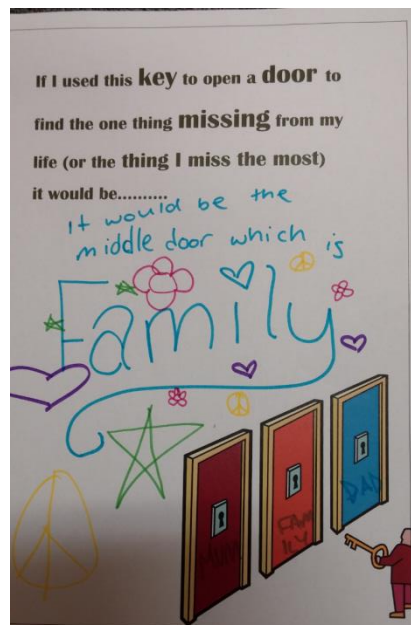 If I used this key to open a door to
find the one thing missing from my
life (or the thing I miss the most)
it would be..........
It would be the
middle door which is
Family
MUM
FAM
ILY
DAD